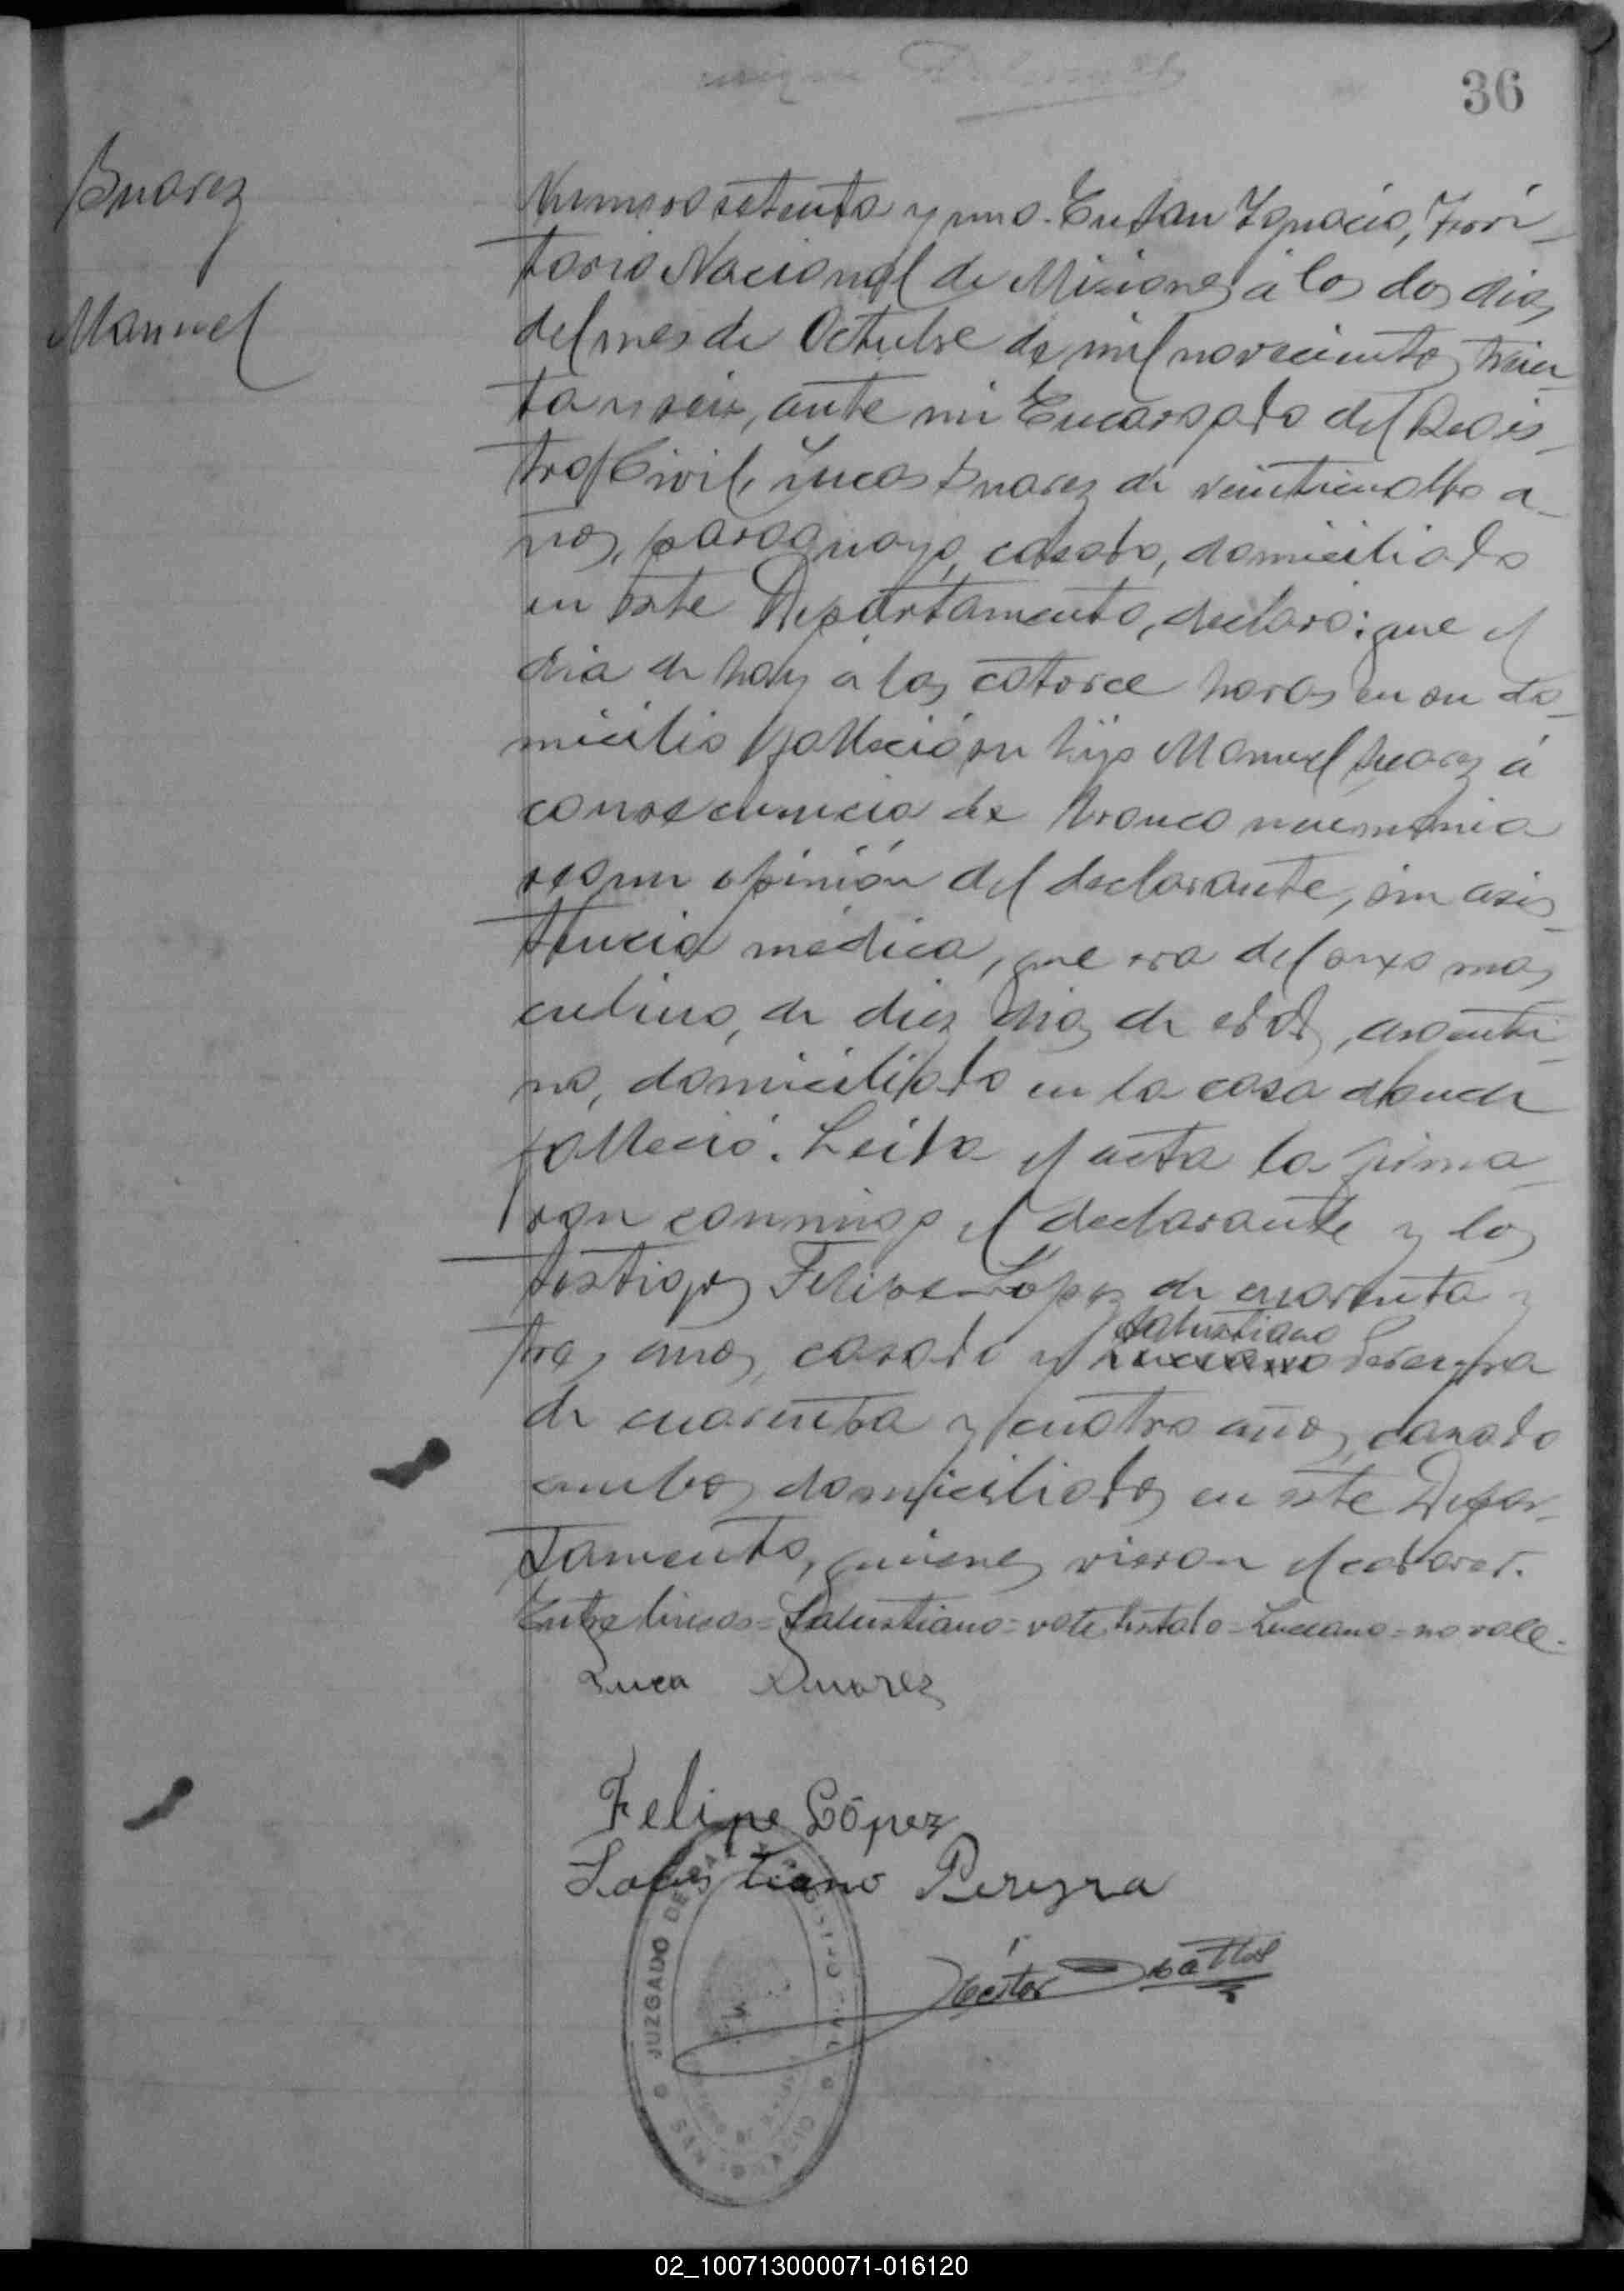 36
Suarez
Manuel
Numero setenta y uno. En San Ignacio, Terri-
torio Nacional de Misiones á los dos dias
del mes de Octubre de mil novecientos trein-
ta y seis, ante mi Encargado del Regis-
tro Civil, Lucas Suarez de veinticuatro a-
ños, paraguayo, casado, domiciliado
en este Departamento, declaró: que el
dia de hoy á las catorce horas en su do-
micilio falleció su hijo Manuel Suarez á
consecuencia de bronco neumonia
segun opinión del declarante, sin asis-
tencia médica, que era del sexo mas-
culino, de diez dias de edad, argenti-
no, domiciliado en la casa donde
falleció. Leida el acta la firma-
ron conmigo el declarante y los
testigos Felipe Lopez de cuarenta y
tres años, casado y Luciano Salustiano Pereyra
de cuarenta y cuatro años, casado
ambos domiciliados en este Depar-
tamento, quienes vieron el cadaver.
Entre lineas = Salustiano = vale testado = Luciano = no vale.
Luca Suarez
Felipe López
Salustiano Pereyra
Héctor
JUZGADO DE PAZ Y REGISTRO CIVIL
SAN IGNACIO
02_100713000071-016120